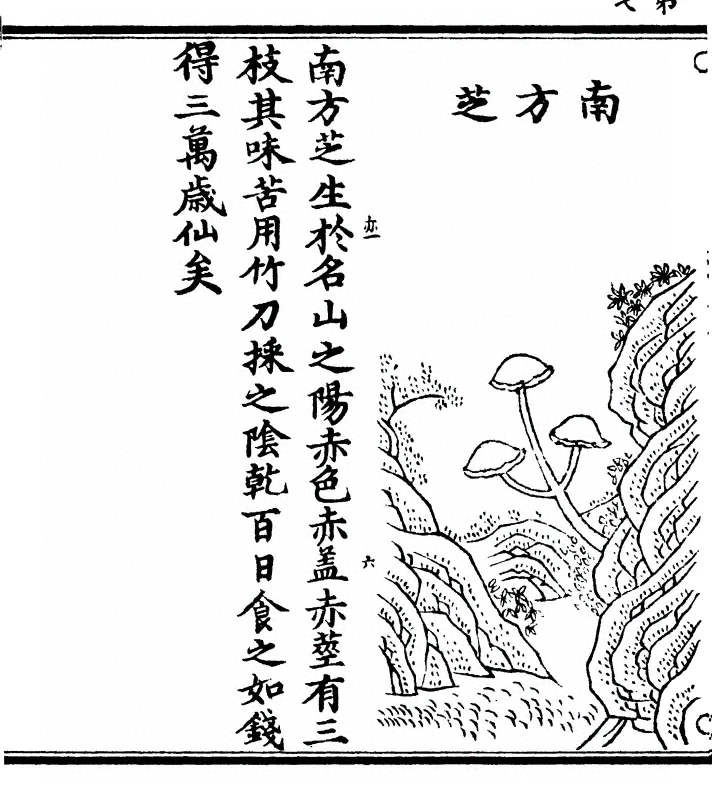 南方芝
南方芝生於名山之陽赤色赤盖赤莖有三
枝其味苦用竹刀採之陰乾百日食之如錢
得三萬歲仙矣
六